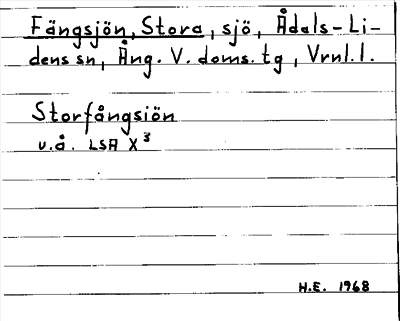 Fängsjön, Stora, sjö, Ådals-Li-
dens sn, Ång. V. doms. tg, Vrnl. l.
Storfångsiön
u.å. LSA X³
H.E. 1968